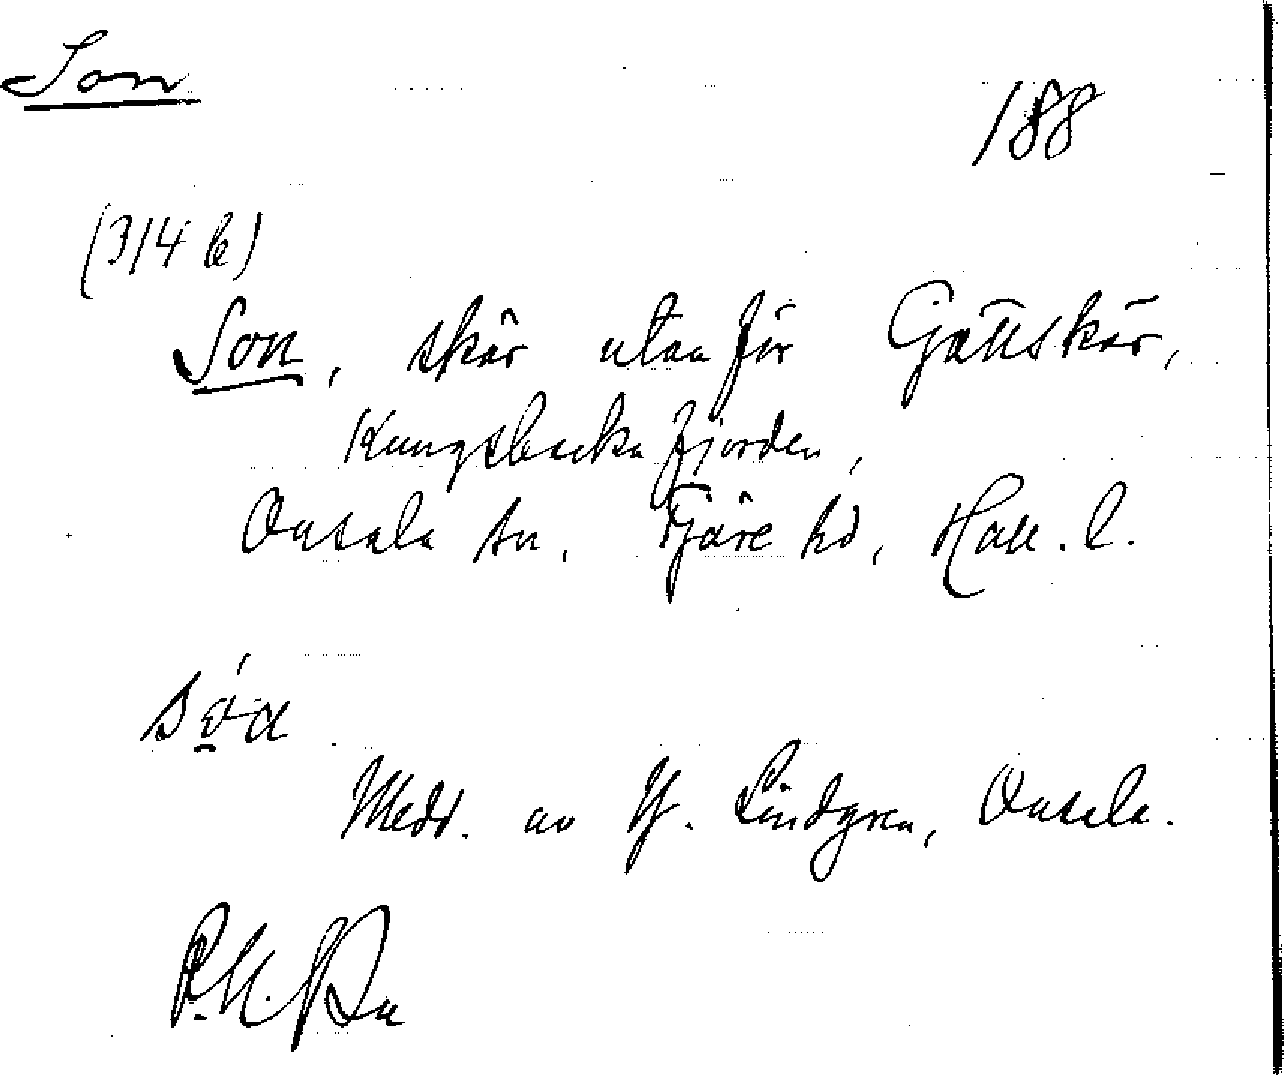 Son
188
(314 b)
Son, skär utanför Gottskär,
Kungsbackafjorden,
Onsala sn, Fjäre hd, Hall. l.
Medd. av Hj. Lindgren, Onsala.